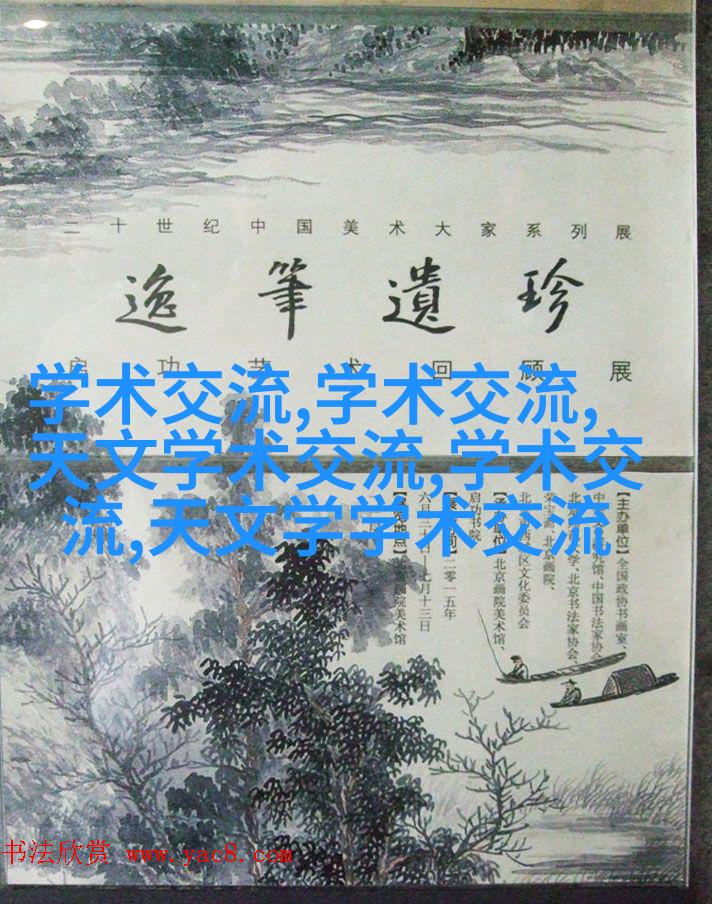 二十世纪中国美术大家系列展
逸筆遺珍
启功艺术回顾展
学术交流,学术交流,
天文学术交流,学术交
流,天文学学术交流
【主办单位】全国政协书画室、
中国书法家协
北 学、北京书法家协会、
荣宝斋、北京画院、
北 区文化委员会
北京画院美术馆、
启功书院
二零一五年
六月二 日—七月十三日
画院美术馆
书法欣赏 www.yac8.com